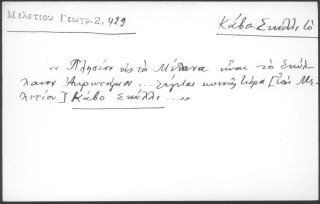 Μελετίου Γεωγρ. 2, 429
Κάβο Σκύλλι, τὸ
« Πλησίον εἰς τὰ Μέγανα εἶναι τὸ Σκύλ-
λαιον Ἀκρωτήριον ... λέγεται κοινῶς τώρα [τοῦ Με-
λετίου] Κάβο Σκύλλι ... »